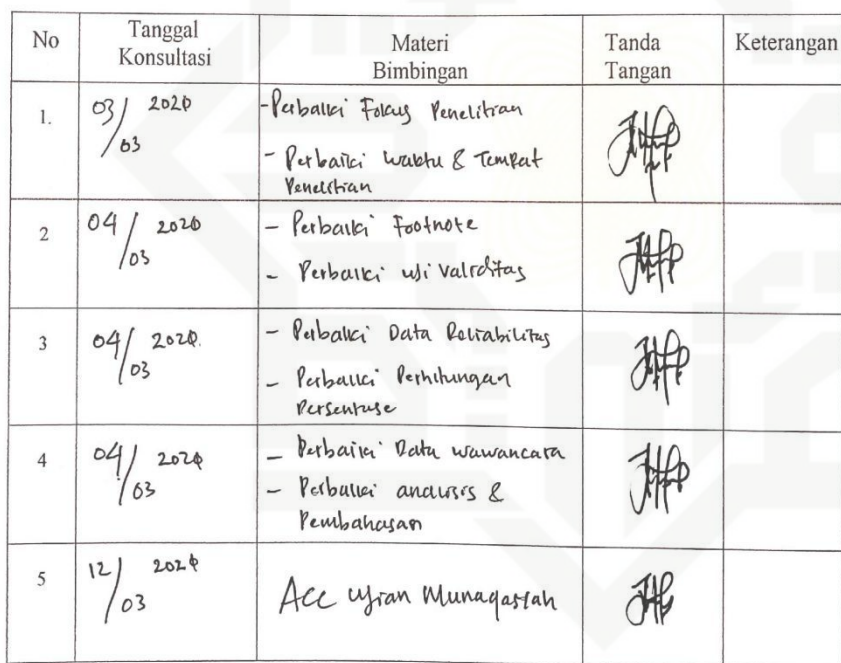 No Tanggal Konsultasi Materi Bimbingan Tanda Tangan Keterangan
1. 03/03 2020 -Perbaiki Fokus Penelitian
- Perbaiki Waktu & Tempat
Penelitian
2 04/03 2020 - Perbaiki Footnote
- Perbaiki uji Validitas
3 04/03 2020. - Perbaiki Data Reliabilitas
- Perbaiki Perhitungan
Persentase
4 04/03 2020 - Perbaiki Data wawancara
- Perbaiki analisis &
Pembahasan
5 12/03 2020 Acc Ujian Munaqasyah